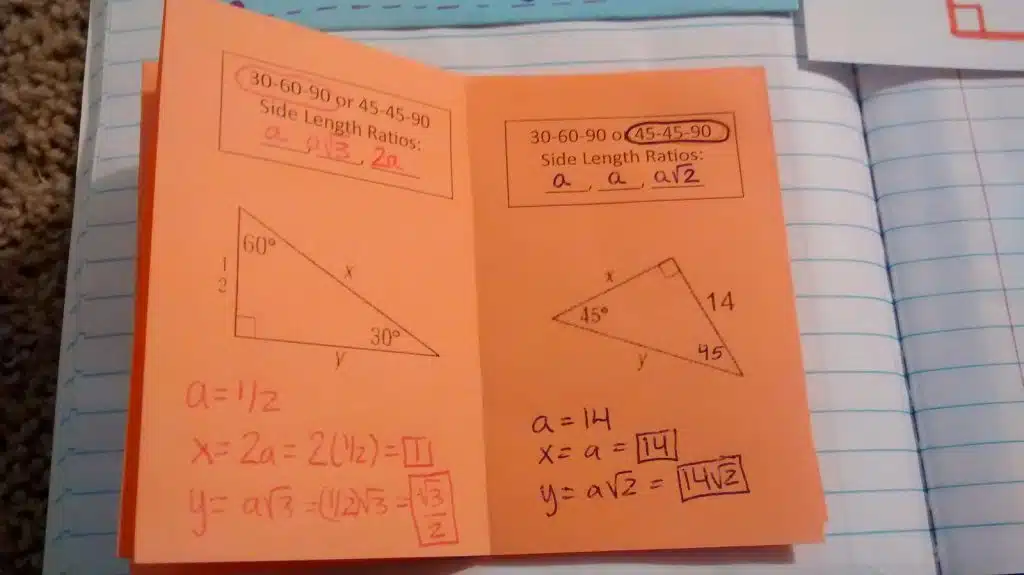 30-60-90 or 45-45-90
Side Length Ratios:
a, a√3, 2a
60°
x
1
2
30°
y
a = 1/2
x = 2a = 2(1/2) = 1
y = a√3 = (1/2)√3 = √3/2
30-60-90 or 45-45-90
Side Length Ratios:
a, a, a√2
x
45°
14
45
y
a = 14
x = a = 14
y = a√2 = 14√2